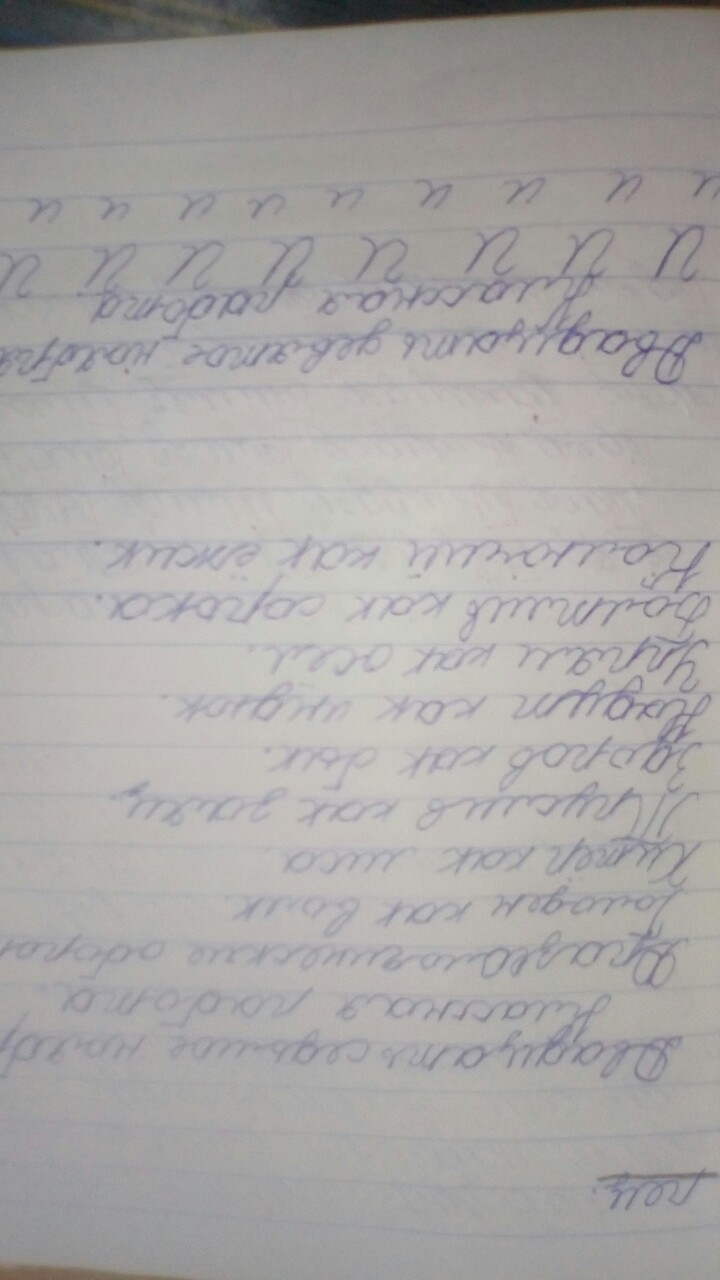 рец.
Двадцать седьмое нояб
Классная работа.
Фразеологические оборо
Голоден как волк
Хитёр как лиса.
Труслив как заяц
Здоров как бык.
Надут как индюк.
Упрям как осел.
Болтлив как сорока.
Колючий как ёжик.
Двадцать девятое ноября
Классная работа
И И И И И И И И И
и и и и и и и и и и